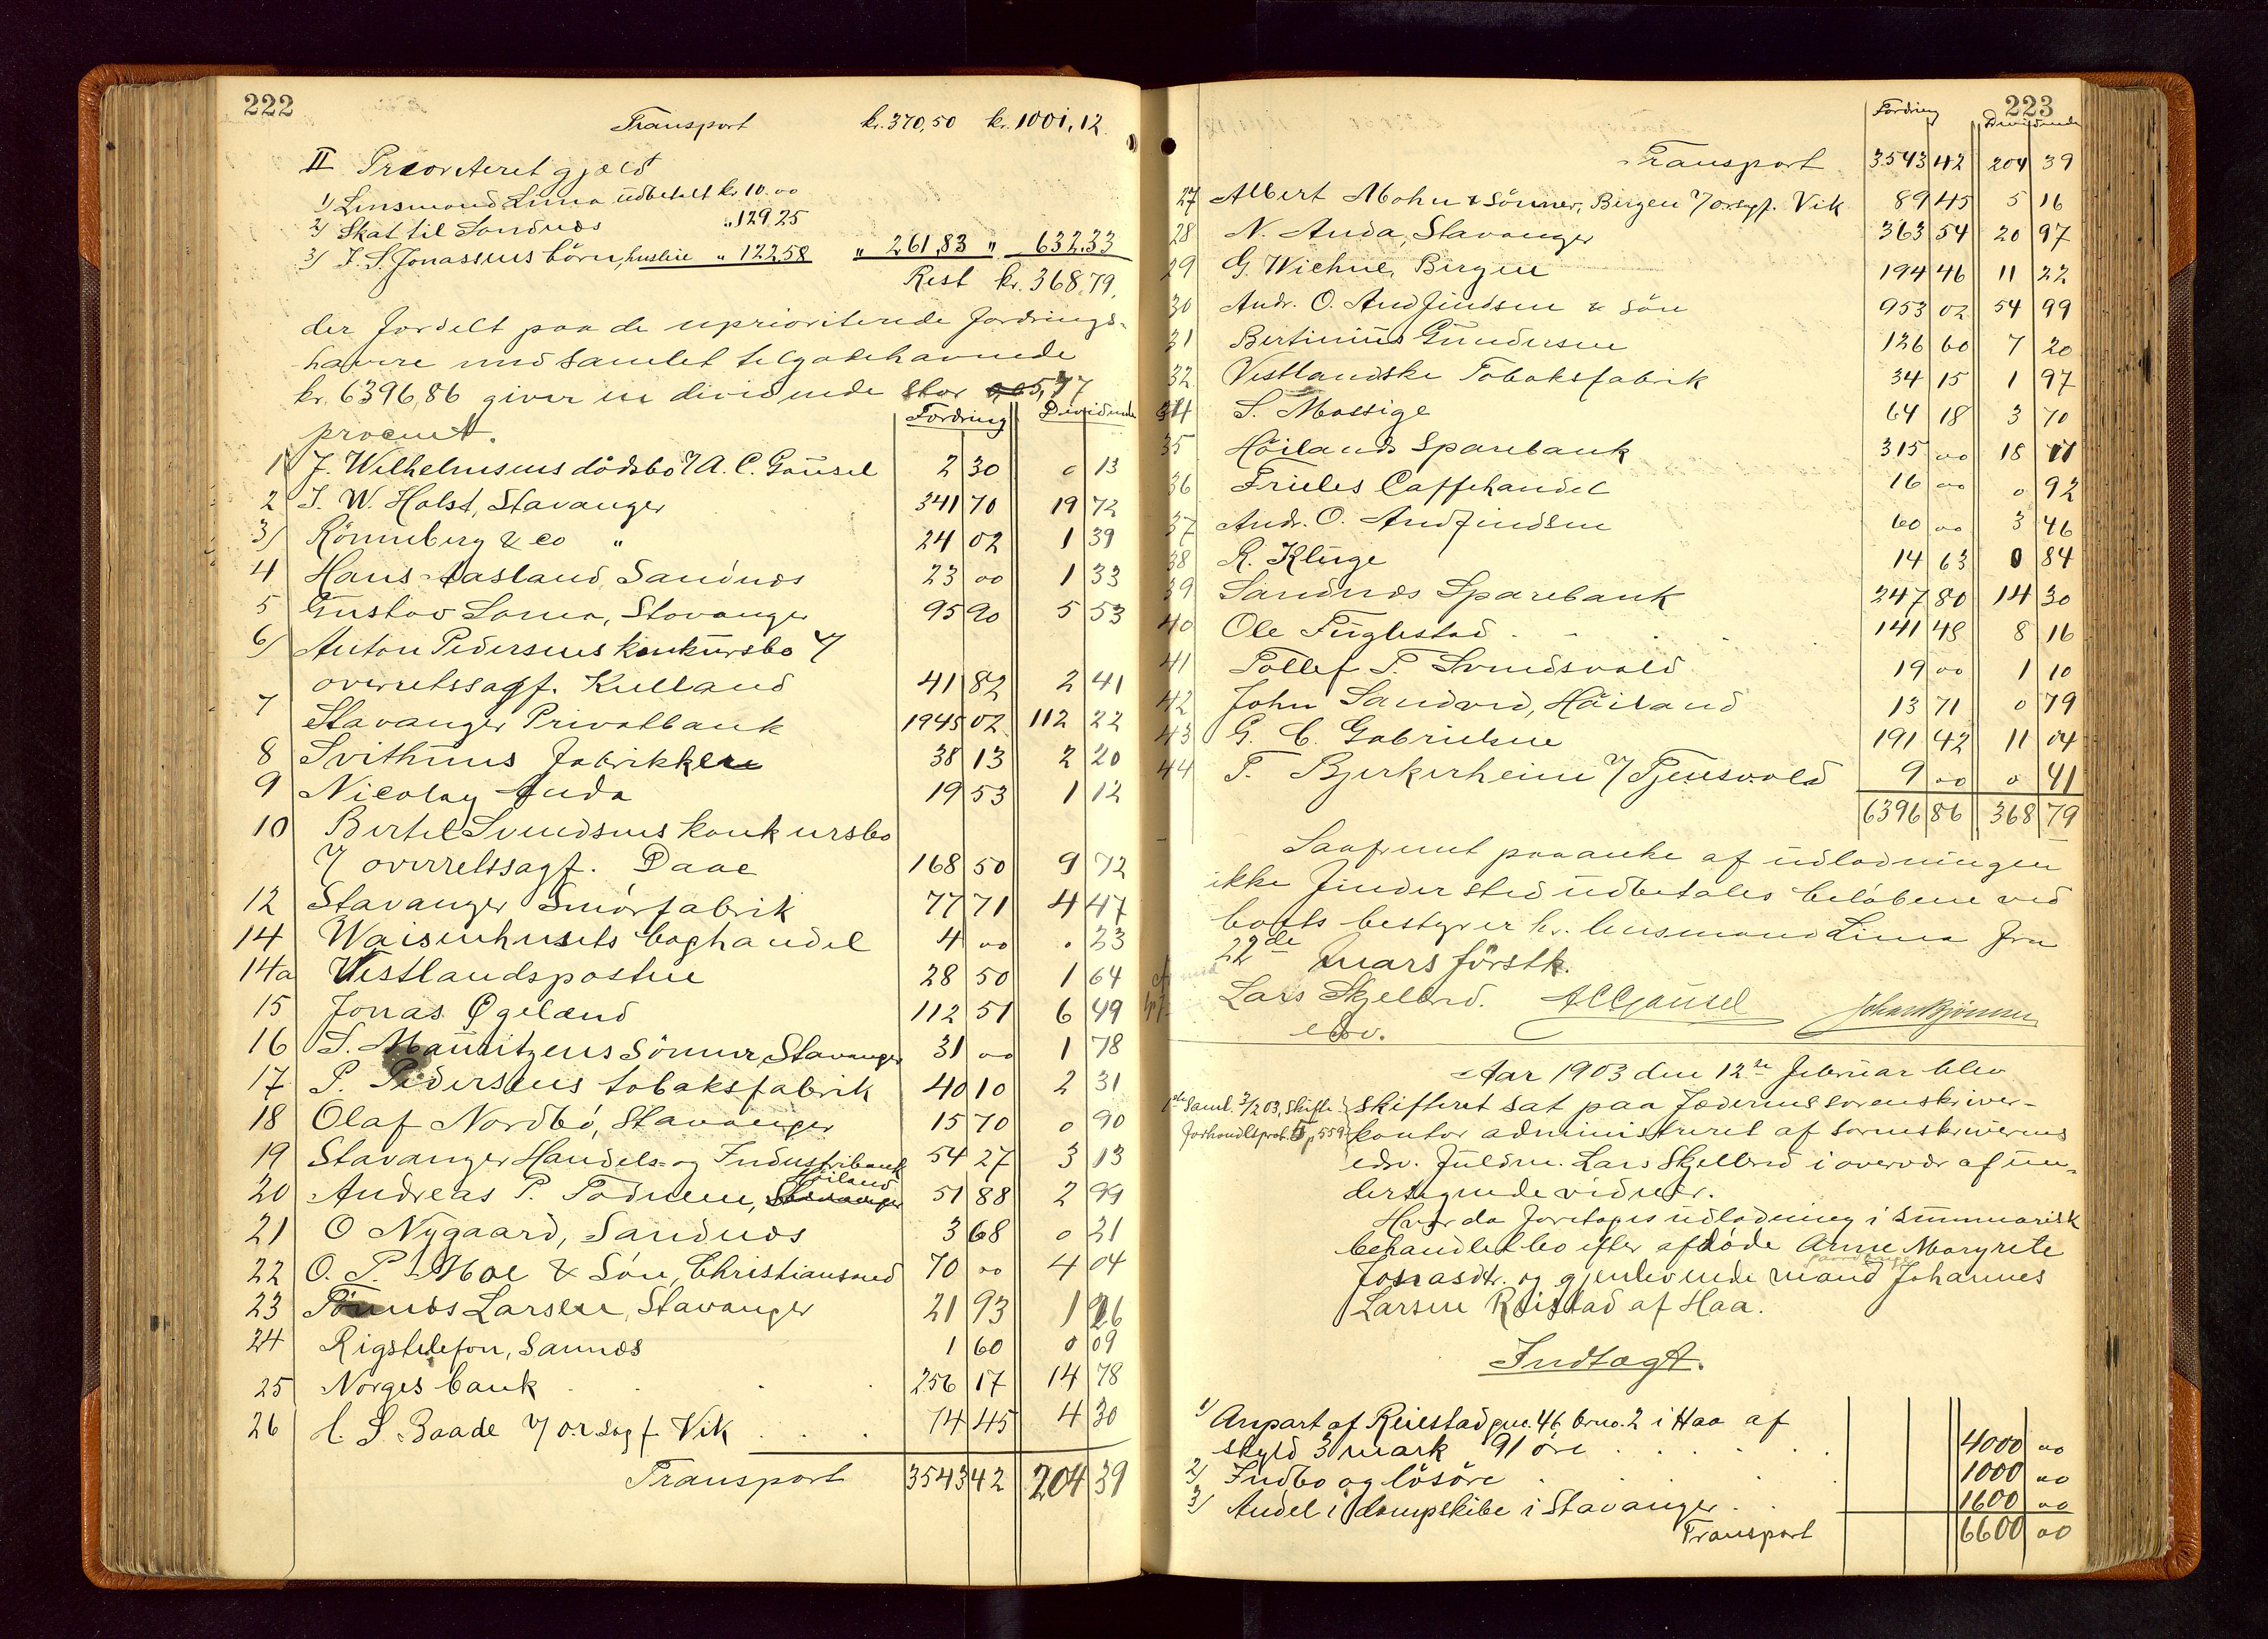 222
Transport kr. 370,50 kr. 1001,12
II Prioriteret gjæld
1) Lensmand Lima udbetalt kr. 10.00
2) Skat til Sandnæs " 129 25
3) J. S. Jonassens börn, husleie " 122.58 " 261,83 " 632.33
Rest kr. 368.79.
der fordelt paa de uprioriterede fordrings-
havere med samlet tilgodehavende
kr. 6396,86 giver en dividende stor 5,77
procent.
Fordring Dividende
1 J. Wilhelmsens dödsbo v/ A. C. Gausel 2 30 0 13
2 J. W. Holst, Stavanger 341 70 19 72
3) Rönneberg & co " 24 02 1 39
4 Hans Aasland, Sandnæs 23 00 1 33
5 Gustav Lama, Stavanger 95 90 5 53
6) Anton Pedersens konkursbo v/
overretssagf. Kulland 41 82 2 41
7 Stavanger Privatbank 1945 02 112 22
8 Svithuns fabrikker 38 13 2 20
9 Nicolay Anda 19 53 1 12
10 Bertel Svendsens konkursbo
v/ overretssagf. Daae 168 50 9 72
12 Stavanger Smörfabrik 77 71 4 47
14 Waisenhusets boghandel 4 00 . 23
14a Vestlandsposten 28 50 1 64
15 Jonas Øgelænd 112 51 6 49
16 S. Mauritzens Sönner, Stavanger 31 00 1 78
17 P. Pedersens tobaksfabrik 40 10 2 31
18 Olaf Nordbö, Stavanger 15 70 0 90
19 Stavanger Handels- og Industribank 54 27 3 13
Höiland
20 Andreas P. Todnem, Stavanger 51 88 2 99
21 O Nygaard, Sandnæs 3 68 0 21
22 O. P. Moe & Sön, Christianssand 70 00 4 04
23 Tönnes Larsen, Stavanger 21 93 1 26
24 Rigstelefon, Sannæs 1 60 0 09
25 Norges bank 256 17 14 78
26 C. S. Baade v/ o.r.sagf. Vik 74 45 4 30
Transport 3543 42 204 39
223
Fordring Dividende
Transport 3543 42 204 39
27 Albert Mohn & Sönner, Bergen v/ orsagf. Vik 89 45 5 16
28 N. Anda, Stavanger 363 54 20 97
29 G. Wiehne, Bergen 194 46 11 22
30 Andr. O. Andfindsen & Sön 953 02 54 99
31 Bertinius Gundersen 126 60 7 20
32 Vestlandske Tobaksfabrik 34 15 1 97
34 S. Mossige 64 18 3 70
35 Höilands Sparebank 315 00 18 17
36 Frieles Caffehandel 16 00 0 92
37 Andr. O. Andfindsen 60 00 3 46
38 R. Kluge 14 63 0 84
39 Sandnæs Sparebank 247 80 14 30
40 Ole Fuglestad 141 48 8 16
41 Tollef T. Svendsvold 19 00 1 10
42 John Sandved, Höiland 13 71 0 79
43 G. C. Gabrielsen 191 42 11 04
44 T. Bjerkreheim v/ Tjensvold 9 00 0 41
6396 86 368 79
Saafremt paaanke af udlodningen
ikke finder sted udbetales belöbene ved
boets bestyrer hr. lensmand Lima fra
22de mars förstk.
Lars Skjelbred. A C Gausel Johan Bjönnes
edsv.
Aar 1903 den 12te februar blev
1ste Saml. 3/2 03, Skifte- skifteret sat paa Jæderens sorenskriver-
forhandlsprot. 5 p 559 kontor administreret af sorenskriverens
edsv. fuldm. Lars Skjelbred i overvær af un-
dertegnede vidner.
Hvor da foretoges udlodning i summarisk
behandlet bo efter afdöde Anne Margrete
Jonasdtr. og gjenlevende mand Johannes
Larsen Reistad af Haa.
Indtægt.
1) Anpart af Reiestad gno. 46 brno. 2 i Haa af
skyld 3 mark 91 öre 4000 00
2) Indbo og lösöre 1000 00
3) Andel i dampskibe i Stavanger 1600 00
Transport 6600 00